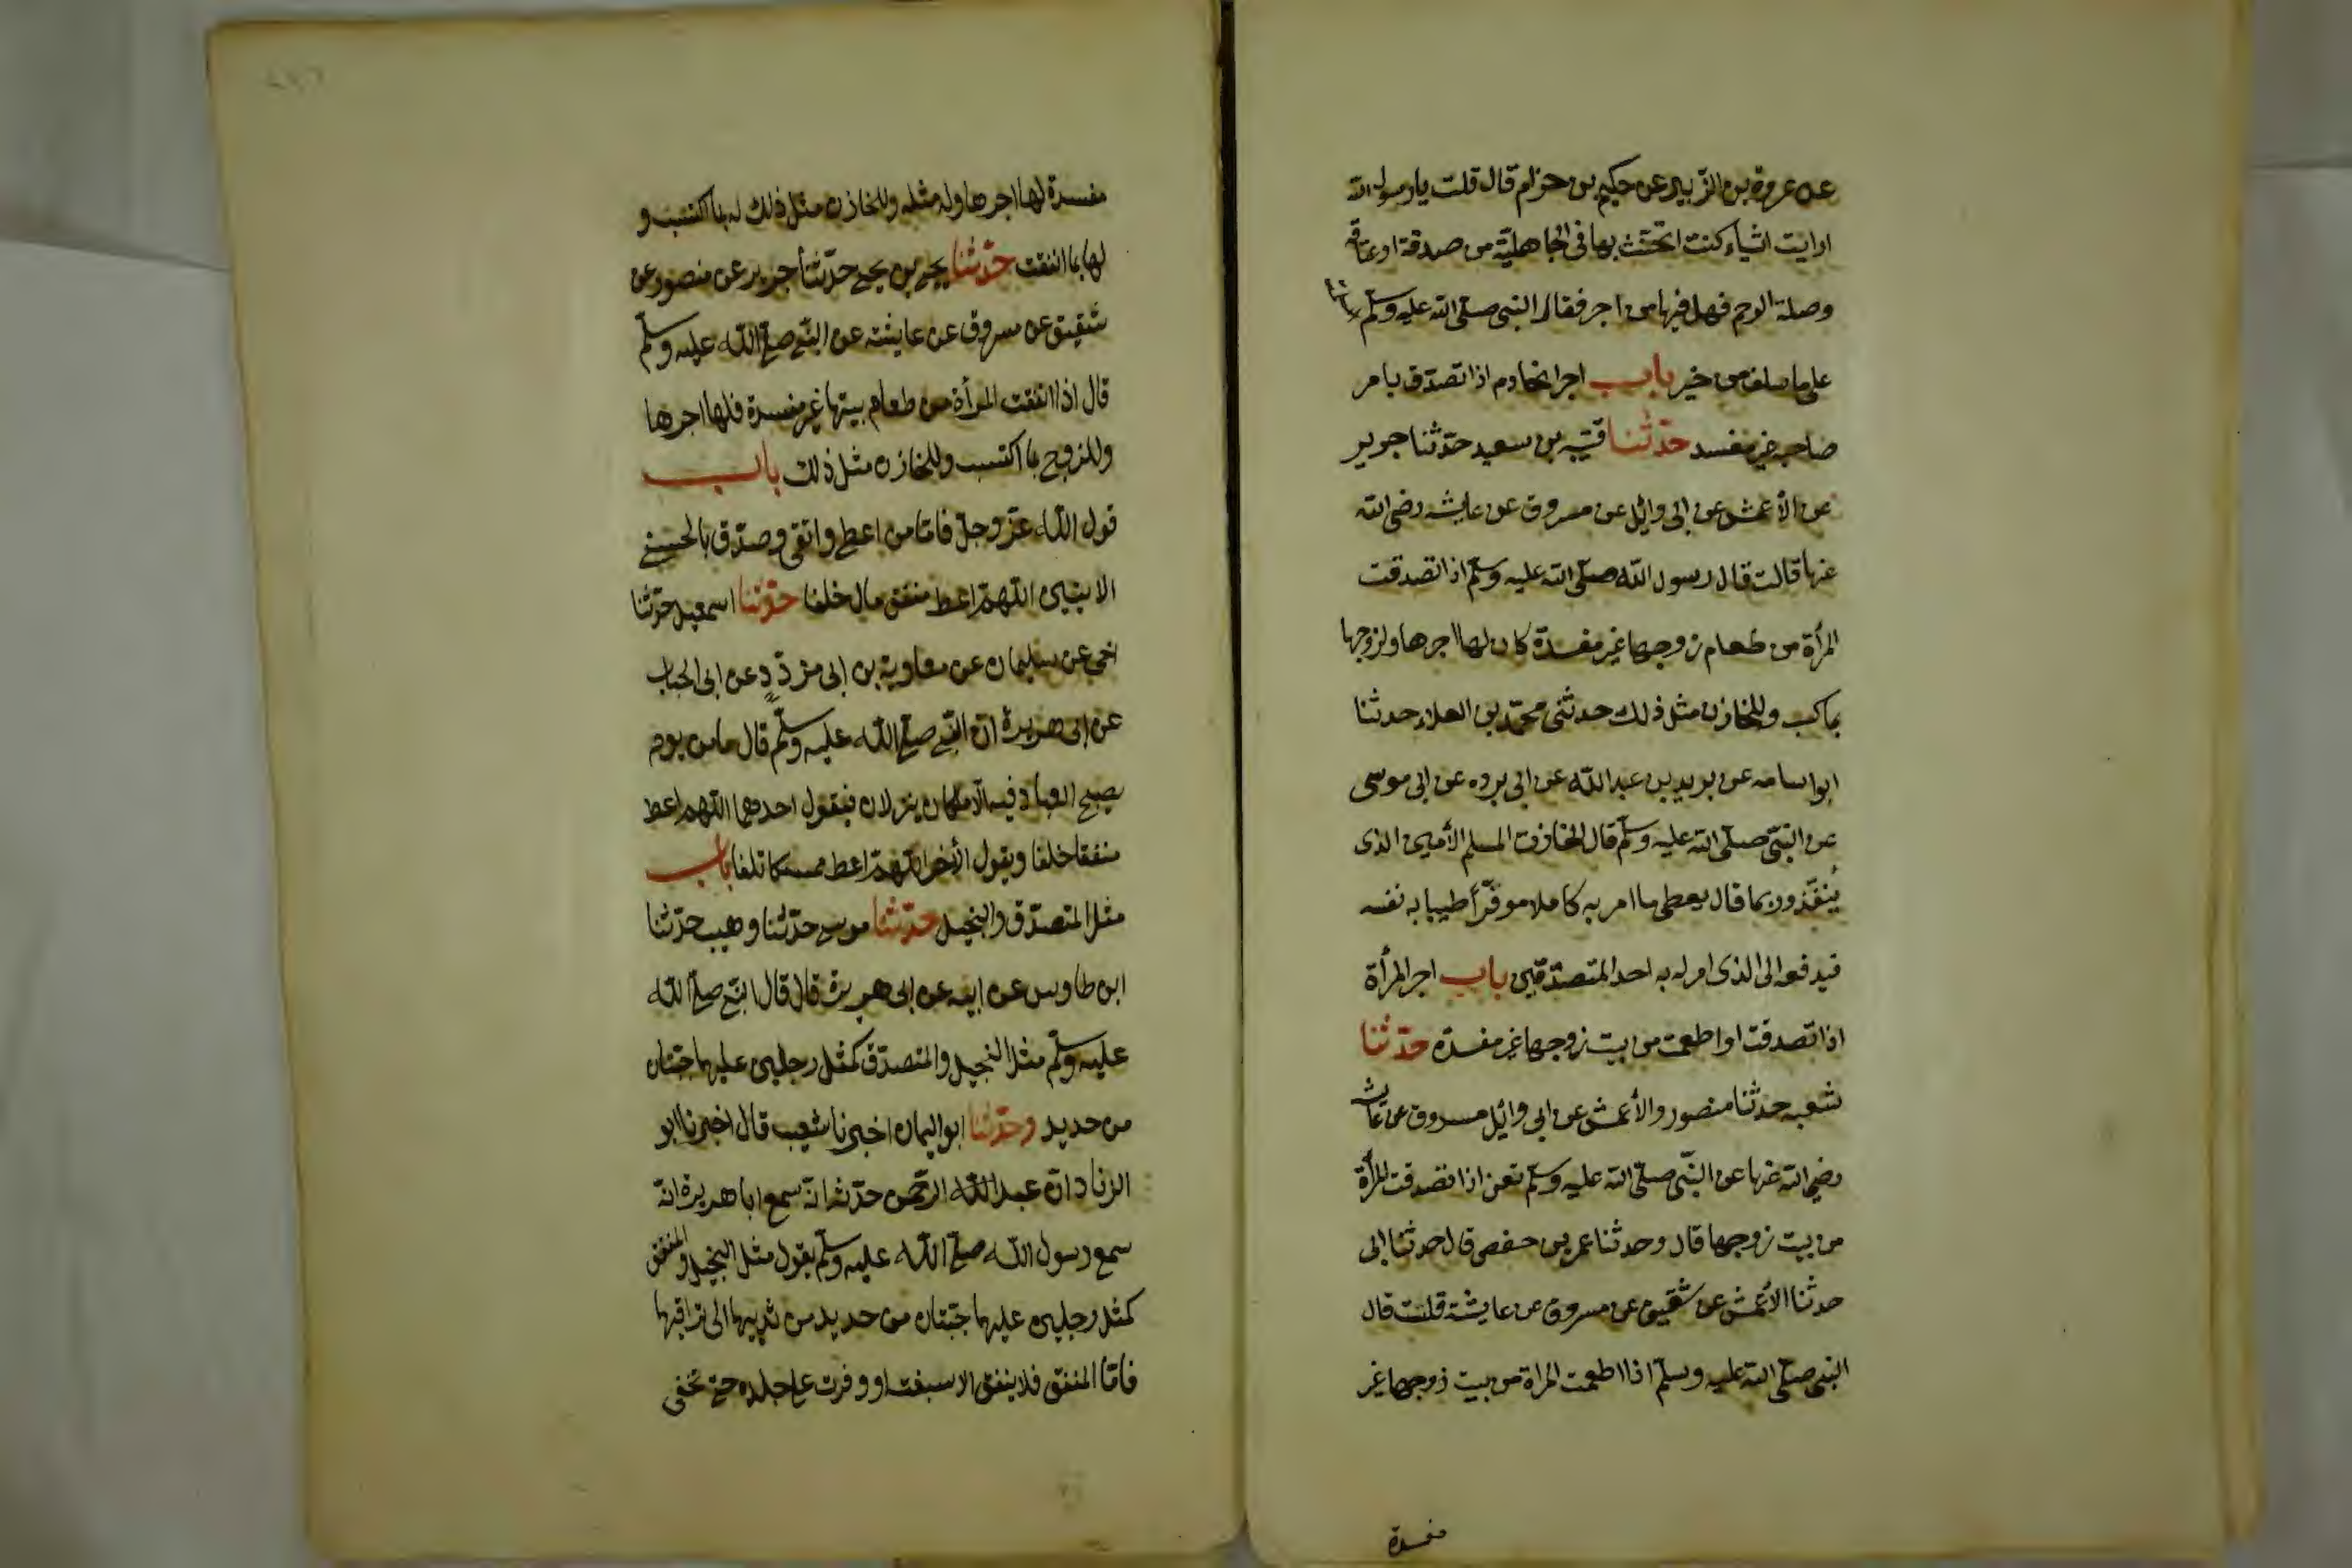 عن عروة بن الزّبير عن حكيم بن حزام قال قلت يا رسول الله
ارايت اشياء كنت اتحنّث بها فى الجاهليّة من صدقة او عتاقة
وصلة الرحم فهل فيها من اجر فقال النبى صلّى الله عليه وسلّم
على ما سلف من خير باب اجر الخادم اذا تصدّق بامر
صاحبه غير مفسد حدّثنا قتيبه بن سعيد حدّثنا جرير
عن الأعمش عن ابى وائل عن مسروق عن عايشه رضى الله
عنها قالت قال رسول الله صلّى الله عليه وسلّم اذا تصدقت
المرأة من طعام زوجها غير مفسدة كان لها اجرها ولزوجها
بما كسب وللخازن مثل ذلك حدثنى محمّد بن العلاء حدثنا
ابو اسامه عن بريد بن عبد الله عن ابى برده عن ابى موسى
عن النبىّ صلّى الله عليه وسلّم قال الخازن المسلم الأمين الذى
ينفّذ وربما قال يعطى ما امر به كاملا موفّرأ طيبا به نفسه
فيدفعه الى الذى امر له به احد المتصدّقين باب اجر المرأة
اذا تصدقت او اطعمت من بيت زوجها غير مفسدة حدّثنا
شعبه حدثنا منصور والأعمش عن ابى وائل مسروق عن عايشه
رضى الله عنها عن النبّى صلّى الله عليه وسلّم تعنى اذا تصدقت المرأة
من بيت زوجها قال وحدثنا عمر بن حفص قال حدثنا ابى
حدثنا الأعمش عن شقيق عن مسروق عن عايشة قلت قال
النبى صلّى الله عليه وسلّم اذا اطعمت المراة من بيت زوجها غير
مفسدة
مفسدة لها اجرها وله مثله وللخازن مثل ذلك له بما اكتسب و
لها بما انفقت حدّثنا يحيى بن يحيى حدّثنا جرير عن منصور عن
شقيق عن مسروق عن عايشه عن النبّى صلّى الله عليه وسلّم
قال اذا انفقت المرأة من طعام بيتها غير مفسدة فلها اجرها
وللزوج بما اكتسب وللخازن مثل ذلك باب
قول الله عزّ وجلّ فامّا من اعطى واتقى وصدّق بالحسنى
اللهمّ اعط منفق مال خلفا حدّثنا اسمعيل حدّثنا
اخى عن سليمان عن معاوية بن ابى مزرّد عن ابى الحباب
عن ابى هريرة انّ النبّى صلّى الله عليه وسلّم قال ما من يوم
يصبح العباد فيه الّا ملكان ينزلان فيقول احدهما اللهم اعط
منفقا خلفا ويقول الأخر اللهمّ اعط ممسكا تلفا باب
مثل المتصدّق والبخيل حدّثنا موسى حدّثنا وهيب حدّثنا
ابن طاوس عن ابيه عن ابى هريرة قال قال النبّى صلّى الله
عليه وسلّم مثل البخيل والمتصدّق كمثل رجلين عليهما جبّتان
من حديد وحدّثنا ابو اليمان اخبرنا شعيب قال اخبرنا ابو
الزناد انّ عبد الله الرحمن حدّثه انّه سمع ابا هريرة انّه
سمع رسول الله صلّى الله عليه وسلّم يقول مثل البخيل والمنفق
كمثل رجلين عليهما جبّتان من حديد من ثديهما الى تراقيهما
فامّا المنفق فلا ينفق الا سبغت او وفرت على جلده حتى تخفى